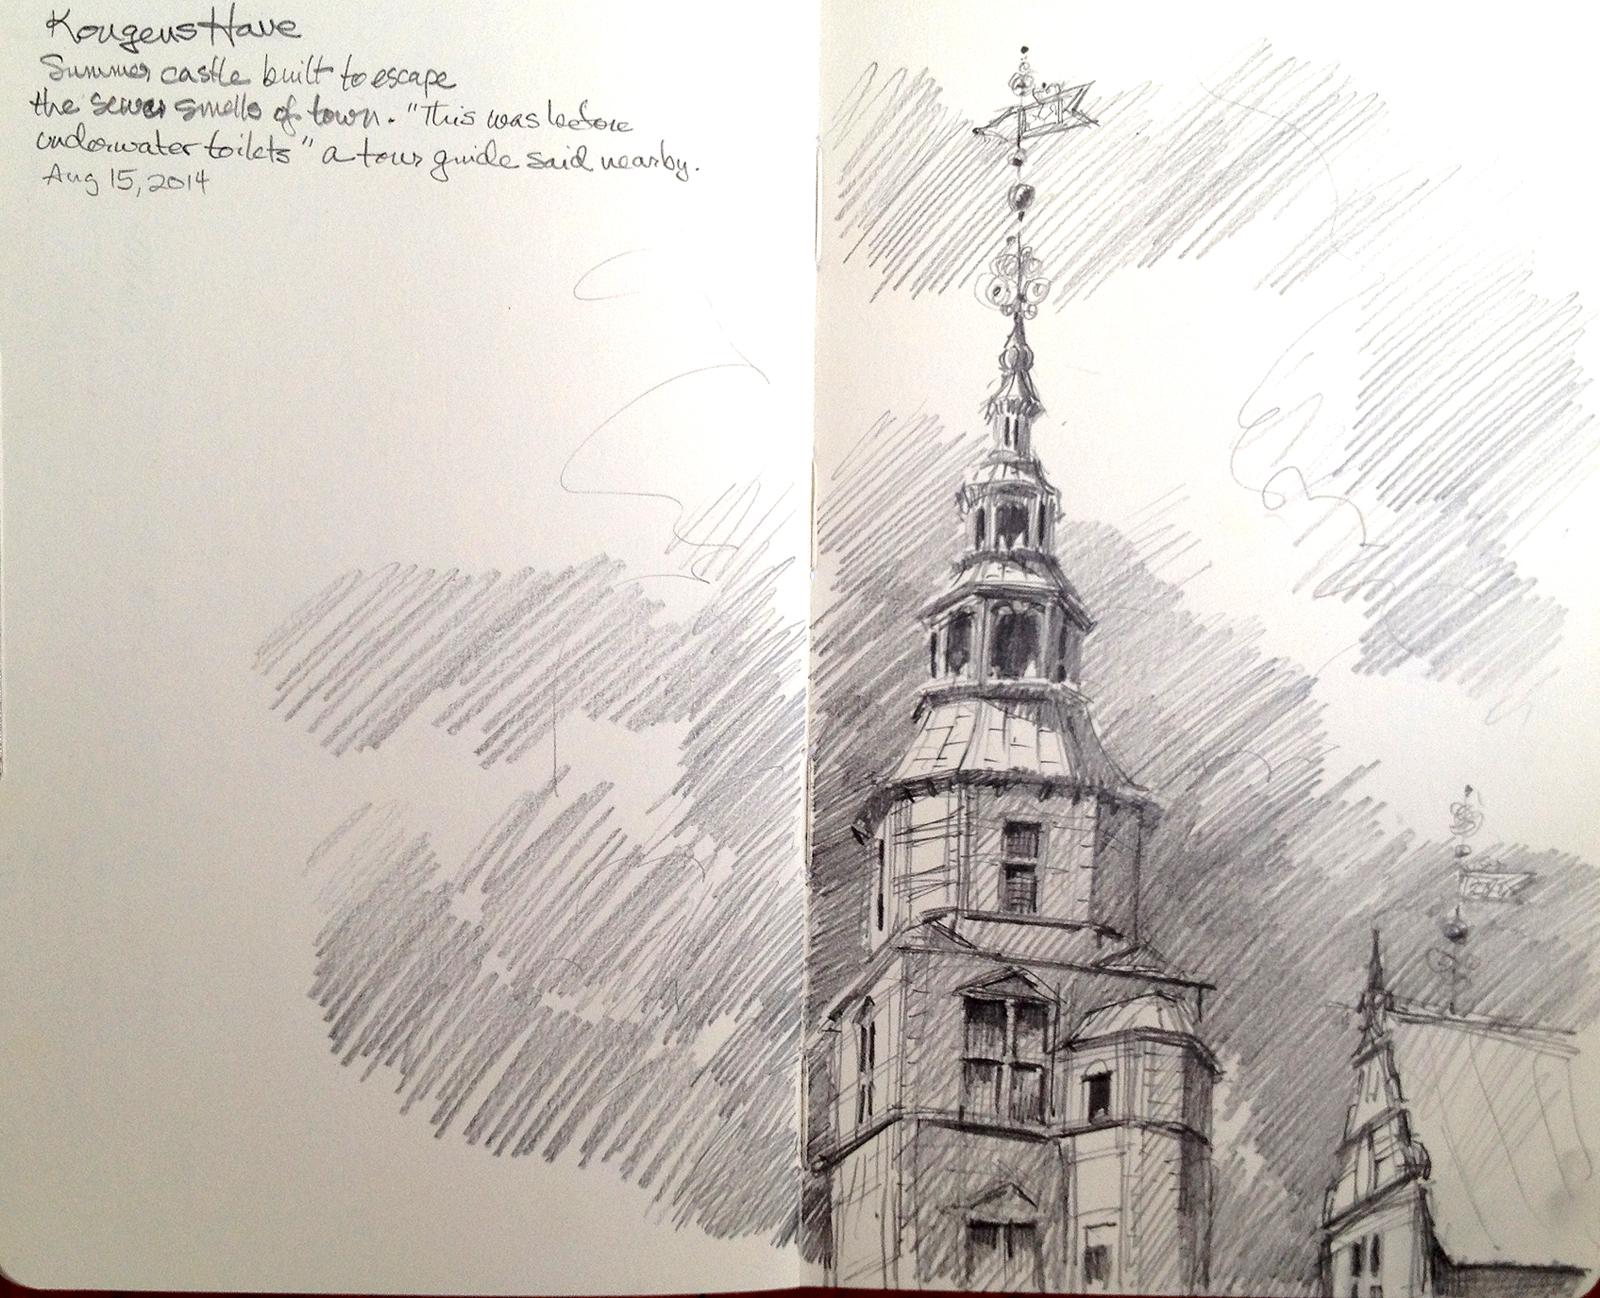 Kongens Have
Summer castle built to escape
the sewer smells of town. "This was before
underwater toilets" a tour guide said nearby.
Aug 15, 2014